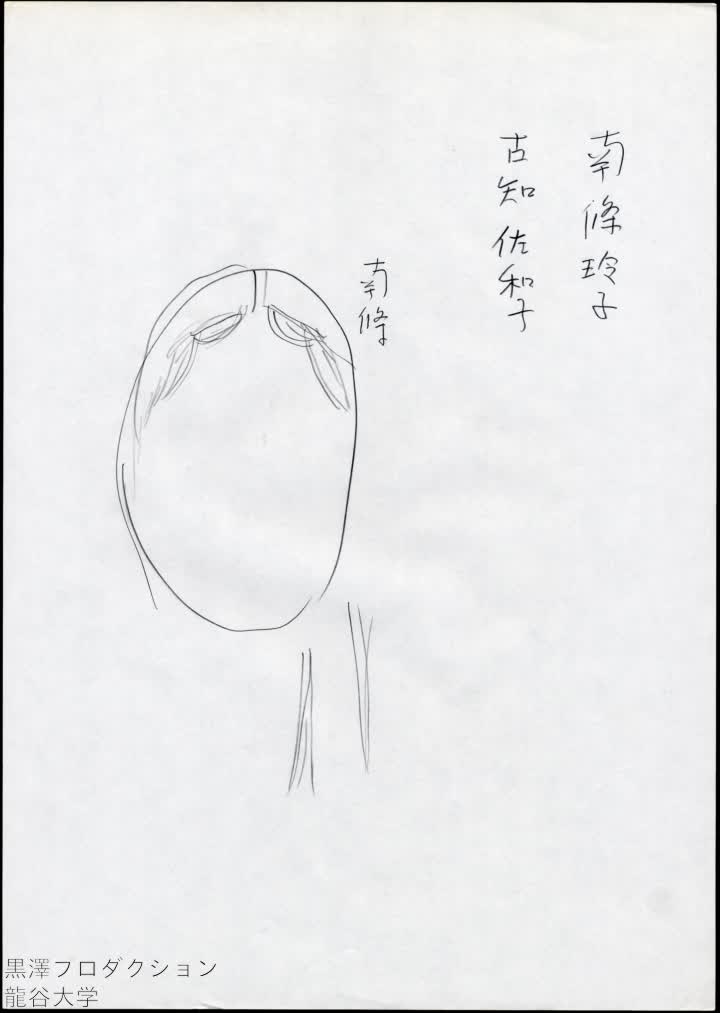 南條玲子
古知佐和子
南條
黒澤フロダクション
龍谷大学